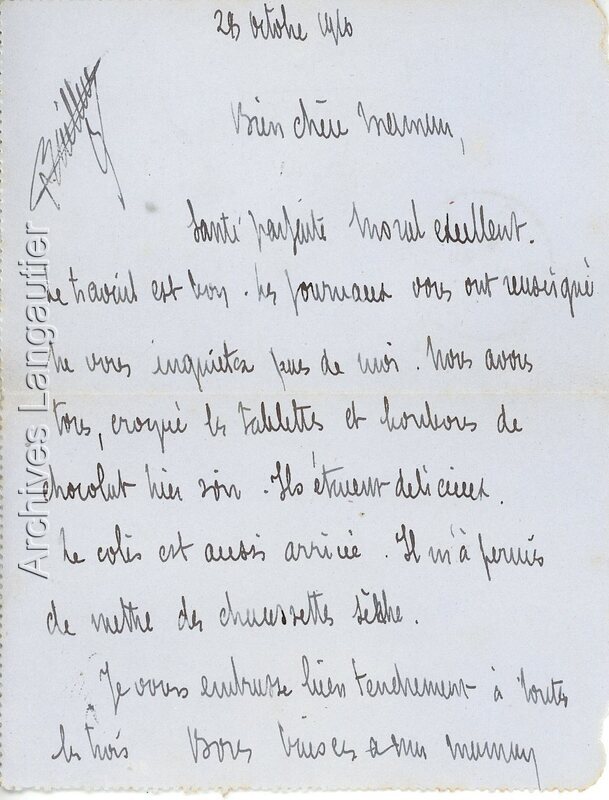 28 octobre 1916
Bien chère Maman,
Santé parfaite Moral excellent.
Le travail est bon. Les journaux vous ont renseigné
Ne vous inquietez pas de moi. Nous avons
tous, croqué les tablettes et bonbons de
chocolat hier soir. Ils étaient delicieux.
Le colis est aussi arrivé. Il m'à permis
de mettre des chaussettes sèche.
Je vous embrasse bien tendrement à toutes
les trois Bons baises a ma maman
Archives Langautier